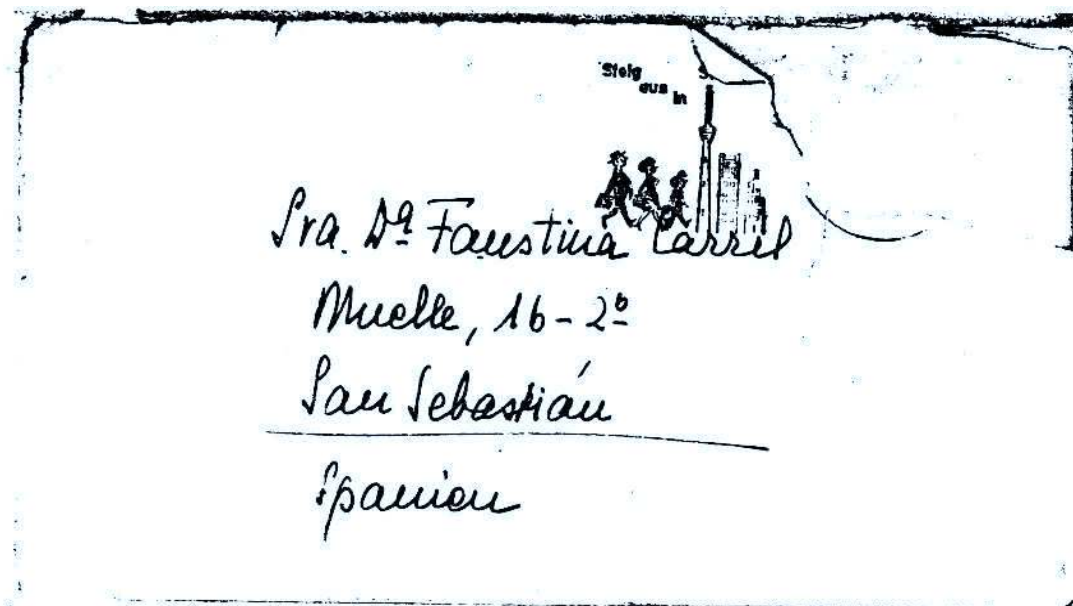 Steig
aus in
S
Sra. Dª Faustina Carril
Muelle, 16-2º
San Sebastián
Spanien